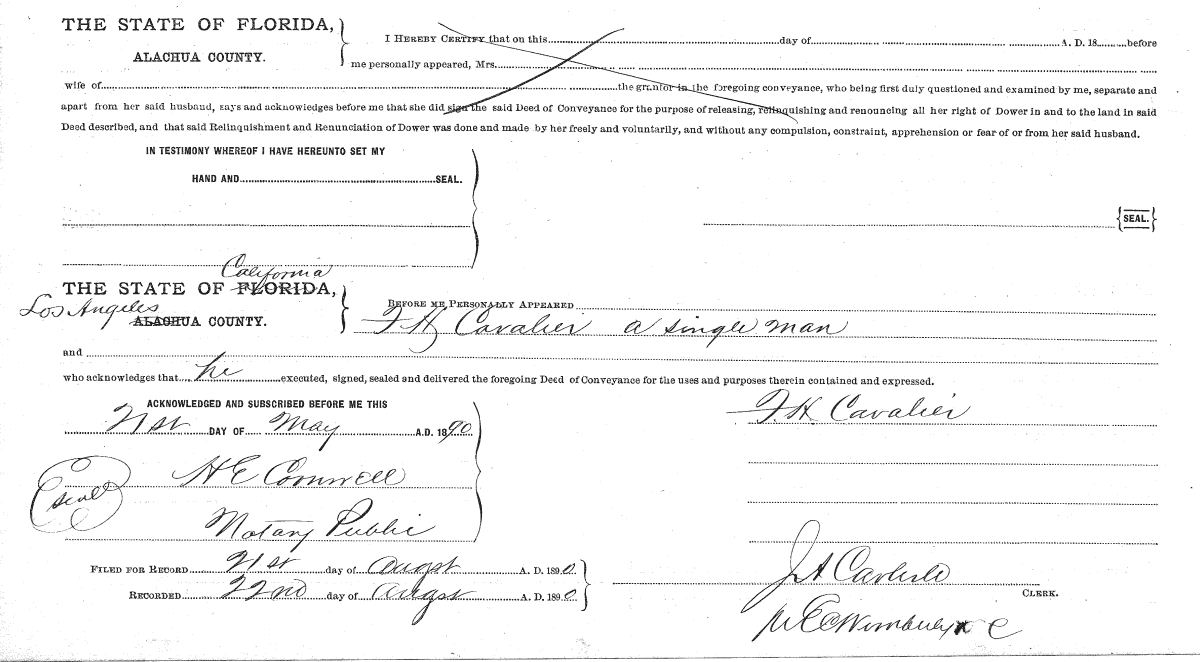 THE STATE OF FLORIDA,
ALACHUA COUNTY.
I HEREBY CERTIFY that on this day of A. D. 18 before
me personally appeared, Mrs.
wife of the grantor in the foregoing conveyance, who being first duly questioned and examined by me, separate and
apart from her said husband, says and acknowledges before me that she did sign the said Deed of Conveyance for the purpose of releasing, relinquishing and renouncing all her right of Dower in and to the land in said
Deed described, and that said Relinquishment and Renunciation of Dower was done and made by her freely and voluntarily, and without any compulsion, constraint, apprehension or fear of or from her said husband.
IN TESTIMONY WHEREOF I HAVE HEREUNTO SET MY
HAND AND SEAL.
SEAL.
California
THE STATE OF FLORIDA,
Los Angeles
ALACHUA COUNTY.
BEFORE ME PERSONALLY APPEARED
F H Cavalier a single man
and
who acknowledges that he executed, signed, sealed and delivered the foregoing Deed of Conveyance for the uses and purposes therein contained and expressed.
ACKNOWLEDGED AND SUBSCRIBED BEFORE ME THIS
21st DAY OF May A.D. 1890
F H Cavalier
H E Cornwell
seal
Notary Public
FILED FOR RECORD 21st day of Augst A. D. 1890
RECORDED 22nd day of Augst A. D. 1890
J A Carlisle
CLERK.
C